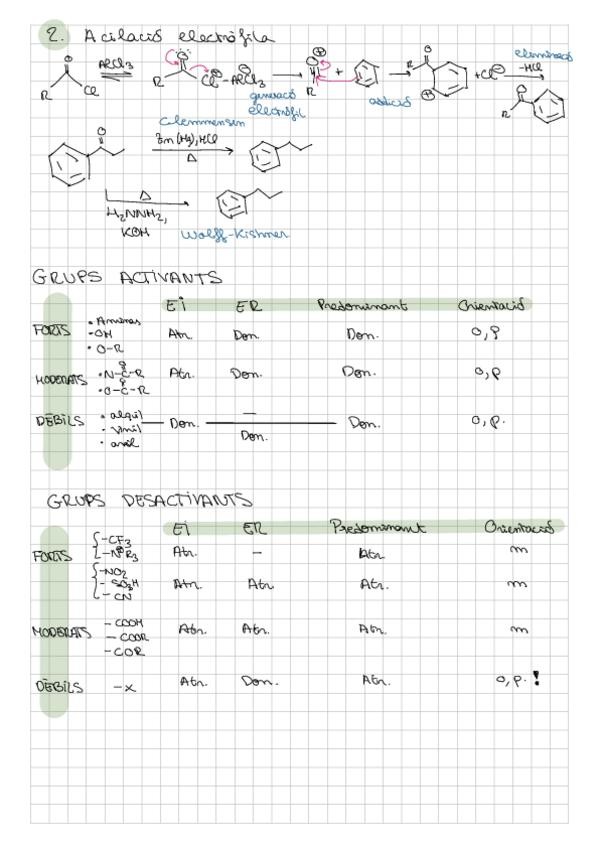 2. Acilació electròfila
O O O
R Cl AlCl3 R Cl⊖-AlCl3 R + R ⊕ +Cl⊖ eliminació -HCl
generació electròfil addició O R
Clemmensen
O Zn(Hg), HCl
Δ
Δ
H2NNH2,
KOH Wolff-Kishner
GRUPS ACTIVANTS
EI ER Predominant Orientació
FORTS • Aminas Atr. Don. Don. O, P
• OH
• O-R
MODERATS • N-C-R Atr. Don. Don. O, P
O
• O-C-R
DÈBILS • alquil — Don. — Don. O, P.
• vinil Don.
• aril
GRUPS DESACTIVANTS
EI ER Predominant Orientació
FORTS -CF3 Atr. - Atr. m
-N⊕R3
-NO2
-SO3H Atr. Atr. Atr. m
-CN
MODERATS -COOH Atr. Atr. Atr. m
-COOR
-COR
DÈBILS -X Atr. Don. Atr. O, P. !